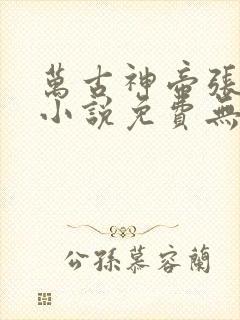 萬古神帝張
小說免費無
公孫慕容蘭